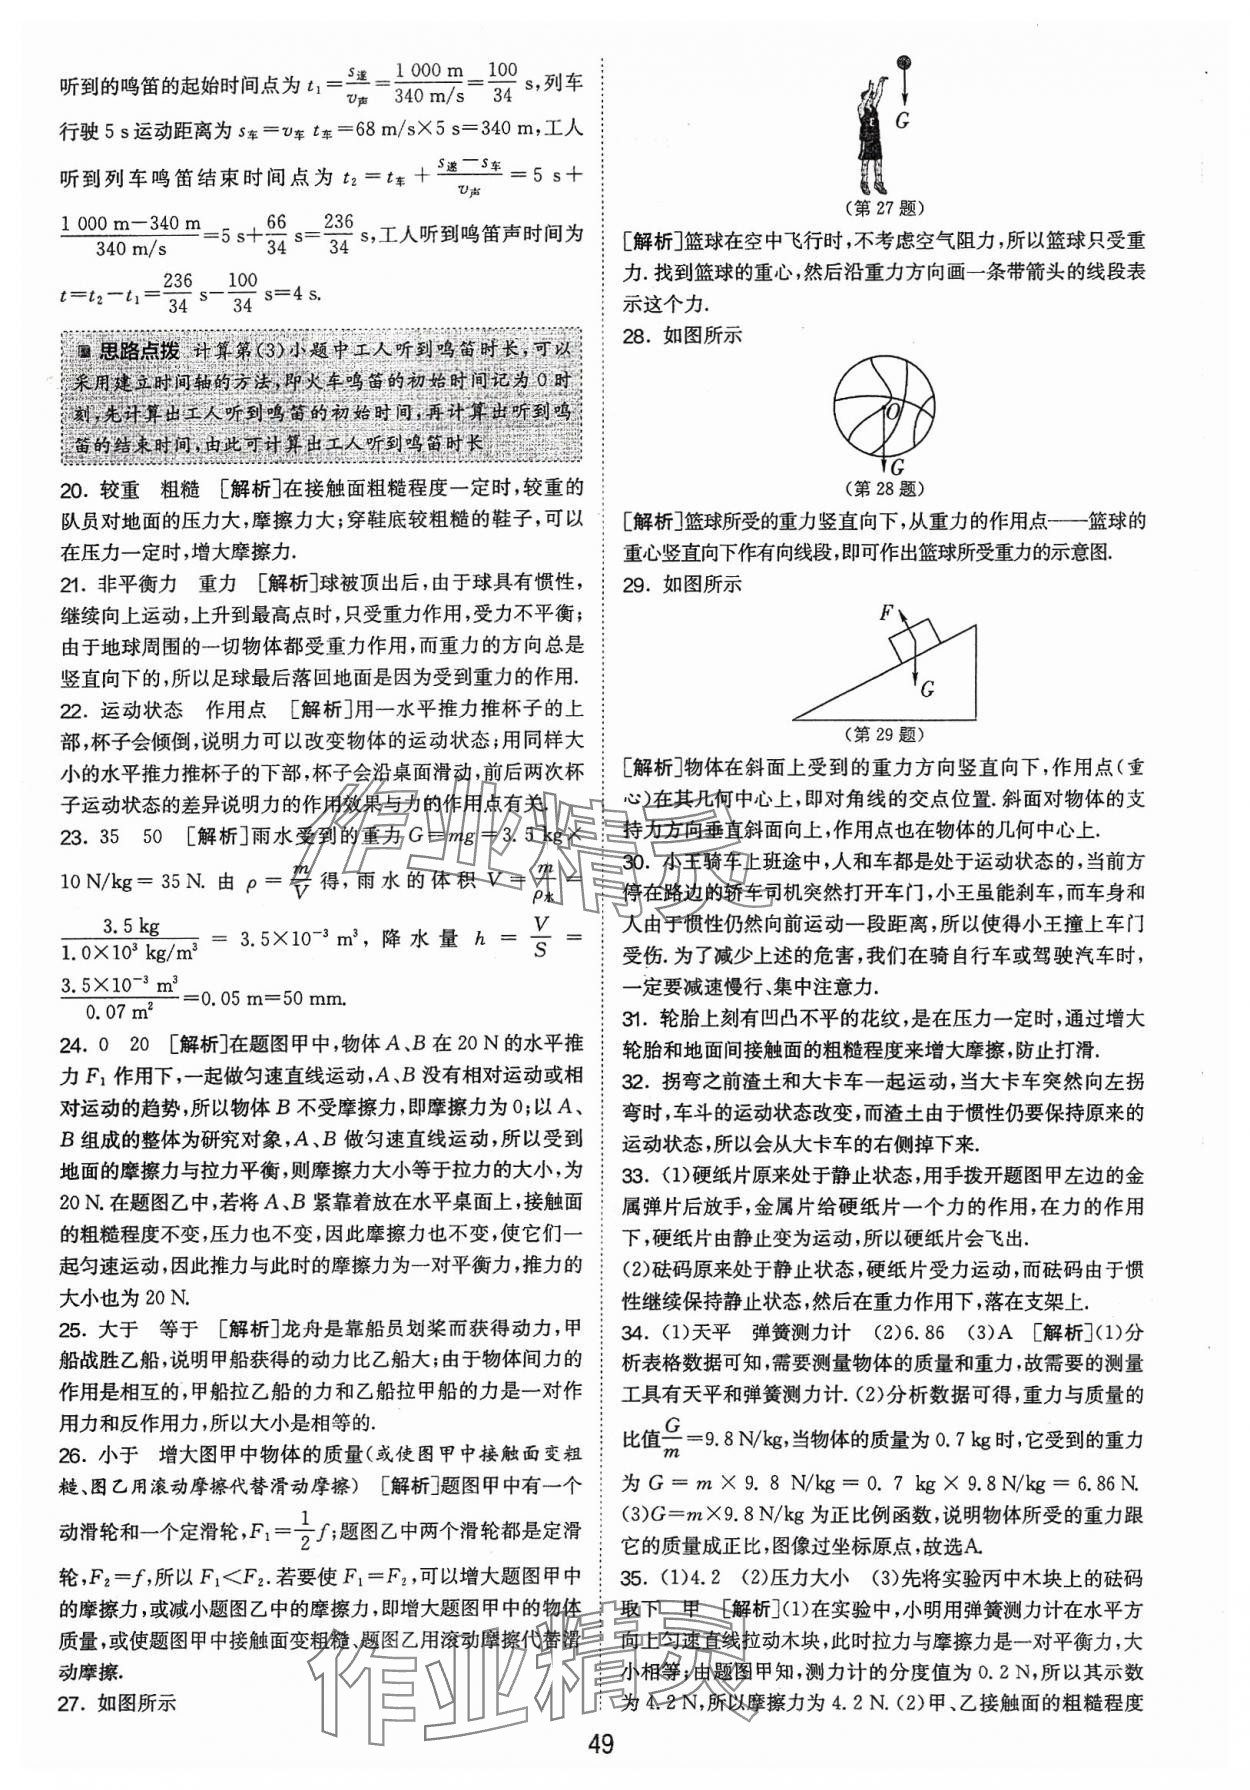 听到的鸣笛的起始时间点为 t₁=s遂/v声=1 000 m/340 m/s=100/34 s,列车
行驶 5 s 运动距离为 s车=v车 t车=68 m/s×5 s=340 m,工人
听到列车鸣笛结束时间点为 t₂=t车+(s遂-s车)/v声=5 s+
(1 000 m-340 m)/(340 m/s)=5 s+66/34 s=236/34 s,工人听到鸣笛声时间为
t=t₂-t₁=236/34 s-100/34 s=4 s.
思路点拨 计算第(3)小题中工人听到鸣笛时长,可以
采用建立时间轴的方法,即火车鸣笛的初始时间记为 0 时
刻,先计算出工人听到鸣笛的初始时间,再计算出听到鸣
笛的结束时间,由此可计算出工人听到鸣笛时长
20. 较重 粗糙 [解析]在接触面粗糙程度一定时,较重的
队员对地面的压力大,摩擦力大;穿鞋底较粗糙的鞋子,可以
在压力一定时,增大摩擦力.
21. 非平衡力 重力 [解析]球被顶出后,由于球具有惯性,
继续向上运动,上升到最高点时,只受重力作用,受力不平衡;
由于地球周围的一切物体都受重力作用,而重力的方向总是
竖直向下的,所以足球最后落回地面是因为受到重力的作用.
22. 运动状态 作用点 [解析]用一水平推力推杯子的上
部,杯子会倾倒,说明力可以改变物体的运动状态;用同样大
小的水平推力推杯子的下部,杯子会沿桌面滑动,前后两次杯
子运动状态的差异说明力的作用效果与力的作用点有关.
23. 35 50 [解析]雨水受到的重力 G=mg=3.5 kg×
10 N/kg=35 N. 由 ρ=m/V 得,雨水的体积 V=m/ρ水=
3.5 kg/(1.0×10³ kg/m³)=3.5×10⁻³ m³,降水量 h=V/S=
3.5×10⁻³ m³/0.07 m²=0.05 m=50 mm.
24. 0 20 [解析]在题图甲中,物体 A、B 在 20 N 的水平推
力 F₁ 作用下,一起做匀速直线运动,A、B 没有相对运动或相
对运动的趋势,所以物体 B 不受摩擦力,即摩擦力为 0;以 A、
B 组成的整体为研究对象,A、B 做匀速直线运动,所以受到
地面的摩擦力与拉力平衡,则摩擦力大小等于拉力的大小,为
20 N. 在题图乙中,若将 A、B 紧靠着放在水平桌面上,接触面
的粗糙程度不变,压力也不变,因此摩擦力也不变,使它们一
起匀速运动,因此推力与此时的摩擦力为一对平衡力,推力的
大小也为 20 N.
25. 大于 等于 [解析]龙舟是靠船员划桨而获得动力,甲
船战胜乙船,说明甲船获得的动力比乙船大;由于物体间力的
作用是相互的,甲船拉乙船的力和乙船拉甲船的力是一对作
用力和反作用力,所以大小是相等的.
26. 小于 增大图甲中物体的质量(或使图甲中接触面变粗
糙、图乙用滚动摩擦代替滑动摩擦) [解析]题图甲中有一个
动滑轮和一个定滑轮,F₁=1/2 f;题图乙中两个滑轮都是定滑
轮,F₂=f,所以 F₁<F₂. 若要使 F₁=F₂,可以增大题图甲中
的摩擦力,或减小题图乙中的摩擦力,即增大题图甲中的物体
质量,或使题图甲中接触面变粗糙、题图乙用滚动摩擦代替滑
动摩擦.
27. 如图所示
G
(第 27 题)
[解析]篮球在空中飞行时,不考虑空气阻力,所以篮球只受重
力. 找到篮球的重心,然后沿重力方向画一条带箭头的线段表
示这个力.
28. 如图所示
O
G
(第 28 题)
[解析]篮球所受的重力竖直向下,从重力的作用点——篮球的
重心竖直向下作有向线段,即可作出篮球所受重力的示意图.
29. 如图所示
F
G
(第 29 题)
[解析]物体在斜面上受到的重力方向竖直向下,作用点(重
心)在其几何中心上,即对角线的交点位置. 斜面对物体的支
持力方向垂直斜面向上,作用点也在物体的几何中心上.
30. 小王骑车上班途中,人和车都是处于运动状态的,当前方
停在路边的轿车司机突然打开车门,小王虽能刹车,而车身和
人由于惯性仍然向前运动一段距离,所以使得小王撞上车门
受伤. 为了减少上述的危害,我们在骑自行车或驾驶汽车时,
一定要减速慢行、集中注意力.
31. 轮胎上刻有凹凸不平的花纹,是在压力一定时,通过增大
轮胎和地面间接触面的粗糙程度来增大摩擦,防止打滑.
32. 拐弯之前渣土和大卡车一起运动,当大卡车突然向左拐
弯时,车斗的运动状态改变,而渣土由于惯性仍要保持原来的
运动状态,所以会从大卡车的右侧掉下来.
33. (1)硬纸片原来处于静止状态,用手拨开题图甲左边的金
属弹片后放手,金属片给硬纸片一个力的作用,在力的作用
下,硬纸片由静止变为运动,所以硬纸片会飞出.
(2)砝码原来处于静止状态,硬纸片受力运动,而砝码由于惯
性继续保持静止状态,然后在重力作用下,落在支架上.
34. (1)天平 弹簧测力计 (2)6.86 (3)A [解析](1)分
析表格数据可知,需要测量物体的质量和重力,故需要的测量
工具有天平和弹簧测力计. (2)分析数据可得,重力与质量的
比值G/m=9.8 N/kg,当物体的质量为 0.7 kg 时,它受到的重力
为 G = m × 9.8 N/kg = 0.7 kg × 9.8 N/kg = 6.86 N.
(3)G=m×9.8 N/kg 为正比例函数,说明物体所受的重力跟
它的质量成正比,图像过坐标原点,故选A.
35. (1)4.2 (2)压力大小 (3)先将实验丙中木块上的砝码
取下 甲 [解析](1)在实验中,小明用弹簧测力计在水平方
向上匀速直线拉动木块,此时拉力与摩擦力是一对平衡力,大
小相等;由题图甲知,测力计的分度值为 0.2 N,所以其示数
为 4.2 N,所以摩擦力为 4.2 N. (2)甲、乙接触面的粗糙程度
49
作业精灵
作业精灵